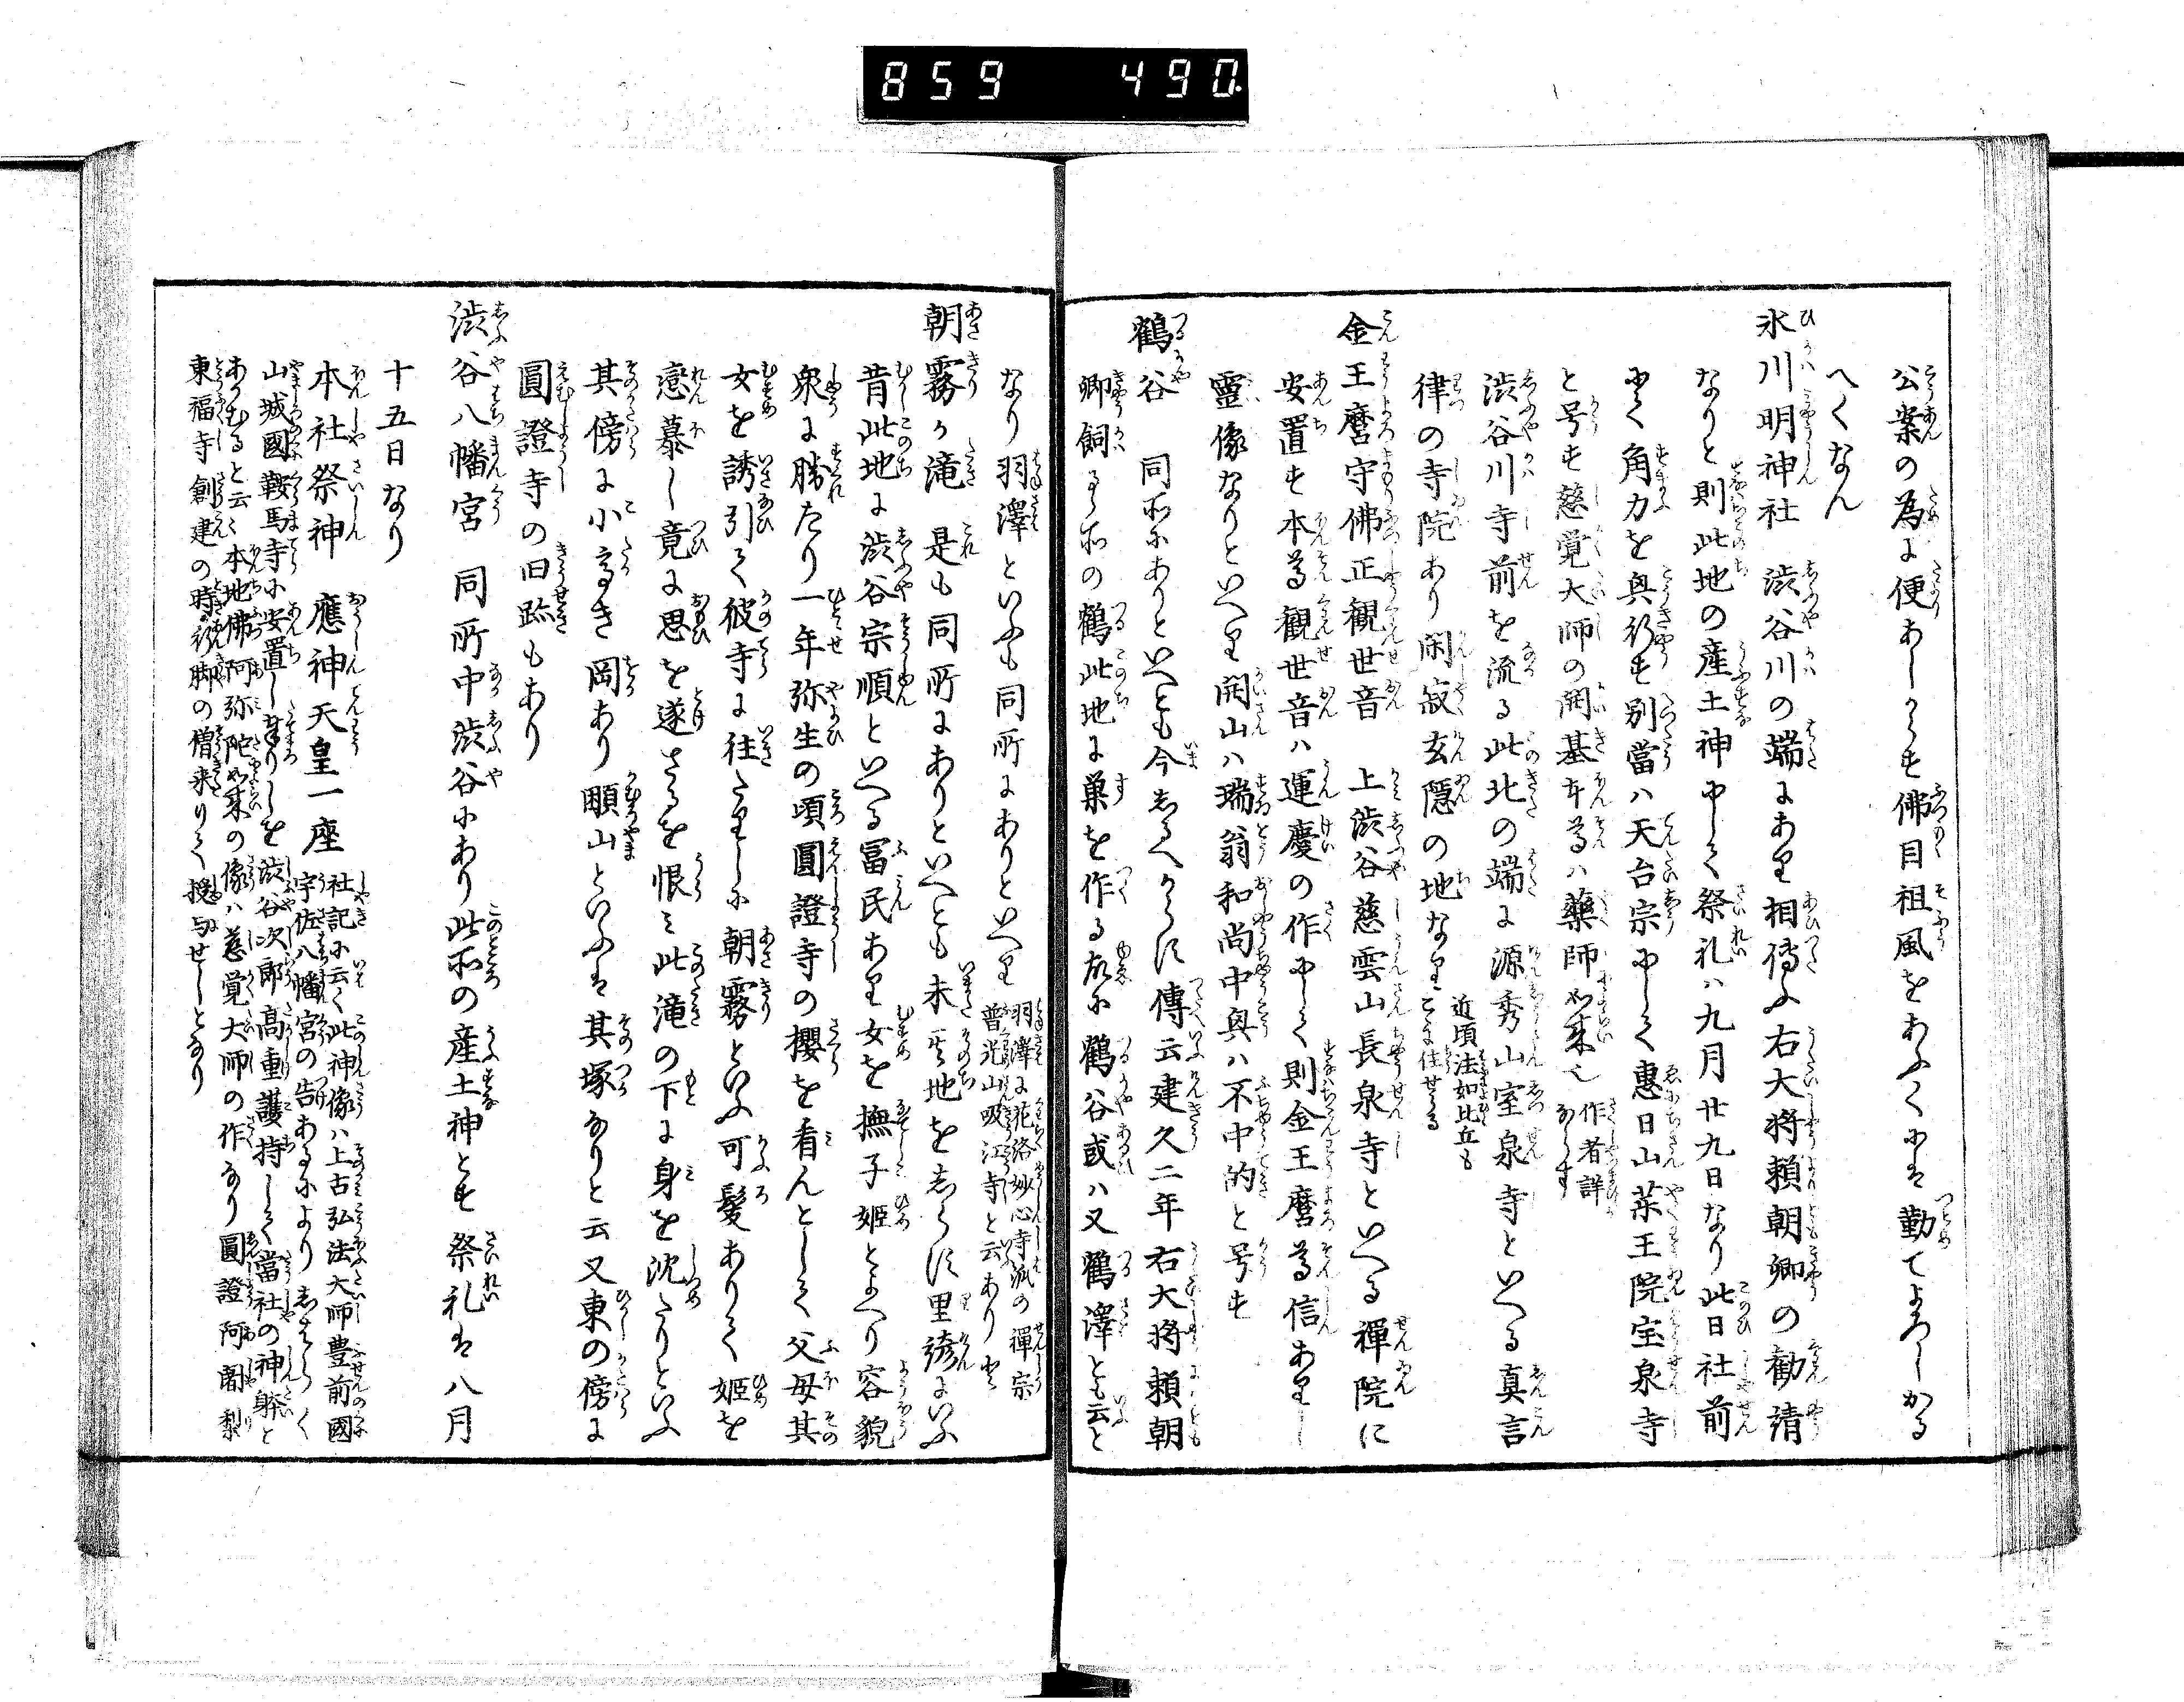 859 490
公案の為に便あしからす佛目祖風をあふくには勤てよろしかる
へくなん
氷川明神社 渋谷川の端にあり相傳ふ右大将頼朝卿の勧請
なりと則此地の産土神にして祭礼ハ九月廿九日なり此日社前
にて角力を興行す別當ハ天台宗にして惠日山薬王院宝泉寺
と号す慈覚大師の開基本尊ハ藥師如来也 作者詳ならす
渋谷川寺前を流る此北の端に源秀山室泉寺といへる真言
律の寺院あり閑寂玄隠の地なり 近頃法如比丘もこゝに住せらる
金王麿守佛正観世音 上渋谷慈雲山長泉寺といへる禪院に
安置す本尊観世音ハ運慶の作にして則金王麿尊信ありし
靈像なりといへり開山ハ瑞翁和尚中興ハ不中的と号す
鶴谷 同所にありといへとも今しるへからす傳云建久二年右大将頼朝
卿飼る所の鶴此地に巣を作る故に鶴谷或ハ又鶴澤とも云と
なり羽澤といふも同所にありといへり 羽澤に花洛妙心寺派の禪宗普光山吸江寺と云あり
朝霧か滝 是も同所にありといへとも未其地をしらす里諺にいふ
昔此地に渋谷宗順といへる冨民あり女を撫子姫とよへり容貌
衆に勝たり一年弥生の頃圓證寺の櫻を看んとして父母其
女を誘引て彼寺に往たりしに朝霧といふ可髪ありて姫を
戀慕し竟に思を遂さるを恨ミ此滝の下に身を沈たりといふ
其傍に小高き岡あり願山といふは其塚なりと云又東の傍に
圓證寺の旧跡もあり
渋谷八幡宮 同所中渋谷にあり此所の産土神とす祭礼は八月
十五日なり
本社祭神 應神天皇一座 社記に云く此神像ハ上古弘法大師豊前國
宇佐八幡宮の告あるによりしはらく
山城國鞍馬寺に安置し奉りしを渋谷次郎高重護持して當社の神躰と
あかむると云く本地佛阿弥陀如来の像ハ慈覚大師の作なり圓證阿闍梨
東福寺創建の時行脚の僧来りて授与せしとなり